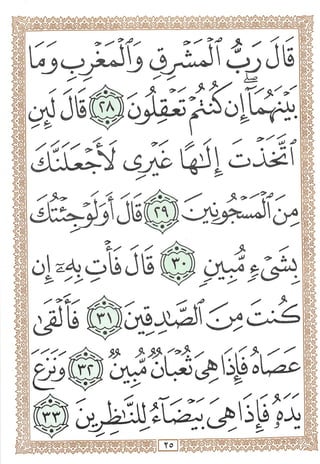 قَالَ رَبُّ ٱلۡمَشۡرِقِ وَٱلۡمَغۡرِبِ وَمَا
بَيۡنَهُمَآۖ إِن كُنتُمۡ تَعۡقِلُونَ ٢٨ قَالَ لَئِنِ
ٱتَّخَذۡتَ إِلَٰهًا غَيۡرِي لَأَجۡعَلَنَّكَ
مِنَ ٱلۡمَسۡجُونِينَ ٢٩ قَالَ أَوَلَوۡ جِئۡتُكَ
بِشَيۡءٖ مُّبِينٖ ٣٠ قَالَ فَأۡتِ بِهِۦٓ إِن
كُنتَ مِنَ ٱلصَّٰدِقِينَ ٣١ فَأَلۡقَىٰ
عَصَاهُ فَإِذَا هِيَ ثُعۡبَانٞ مُّبِينٞ ٣٢ وَنَزَعَ
يَدَهُۥ فَإِذَا هِيَ بَيۡضَآءُ لِلنَّٰظِرِينَ ٣٣
٢٥